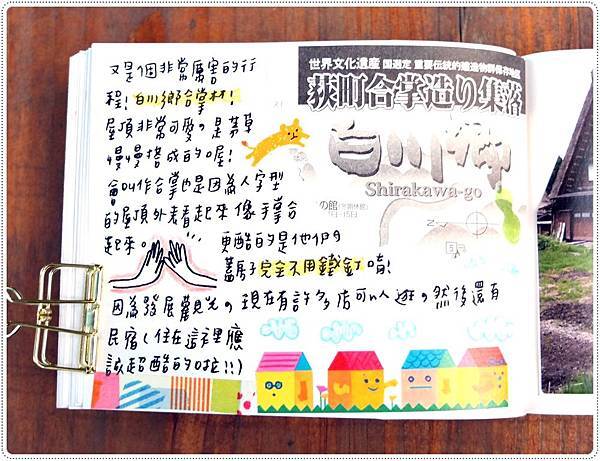 又是個非常厲害的行
程!白川鄉合掌村!
屋頂非常可愛,是茅草
慢慢搭成的喔!
會叫作合掌也是因為人字型
的屋頂外表看起來像手掌合
起來。
更酷的是他們
蓋房子完全不用鐵釘唷!
因為發展觀光,現在有許多店可以逛,然後還有
民宿(住在這裡應
該超酷的啦!!)
世界文化遺産 国選定 重要伝統的建造物群保存地区
荻町合掌造り集落
白川郷
Shirakawa-go
の館